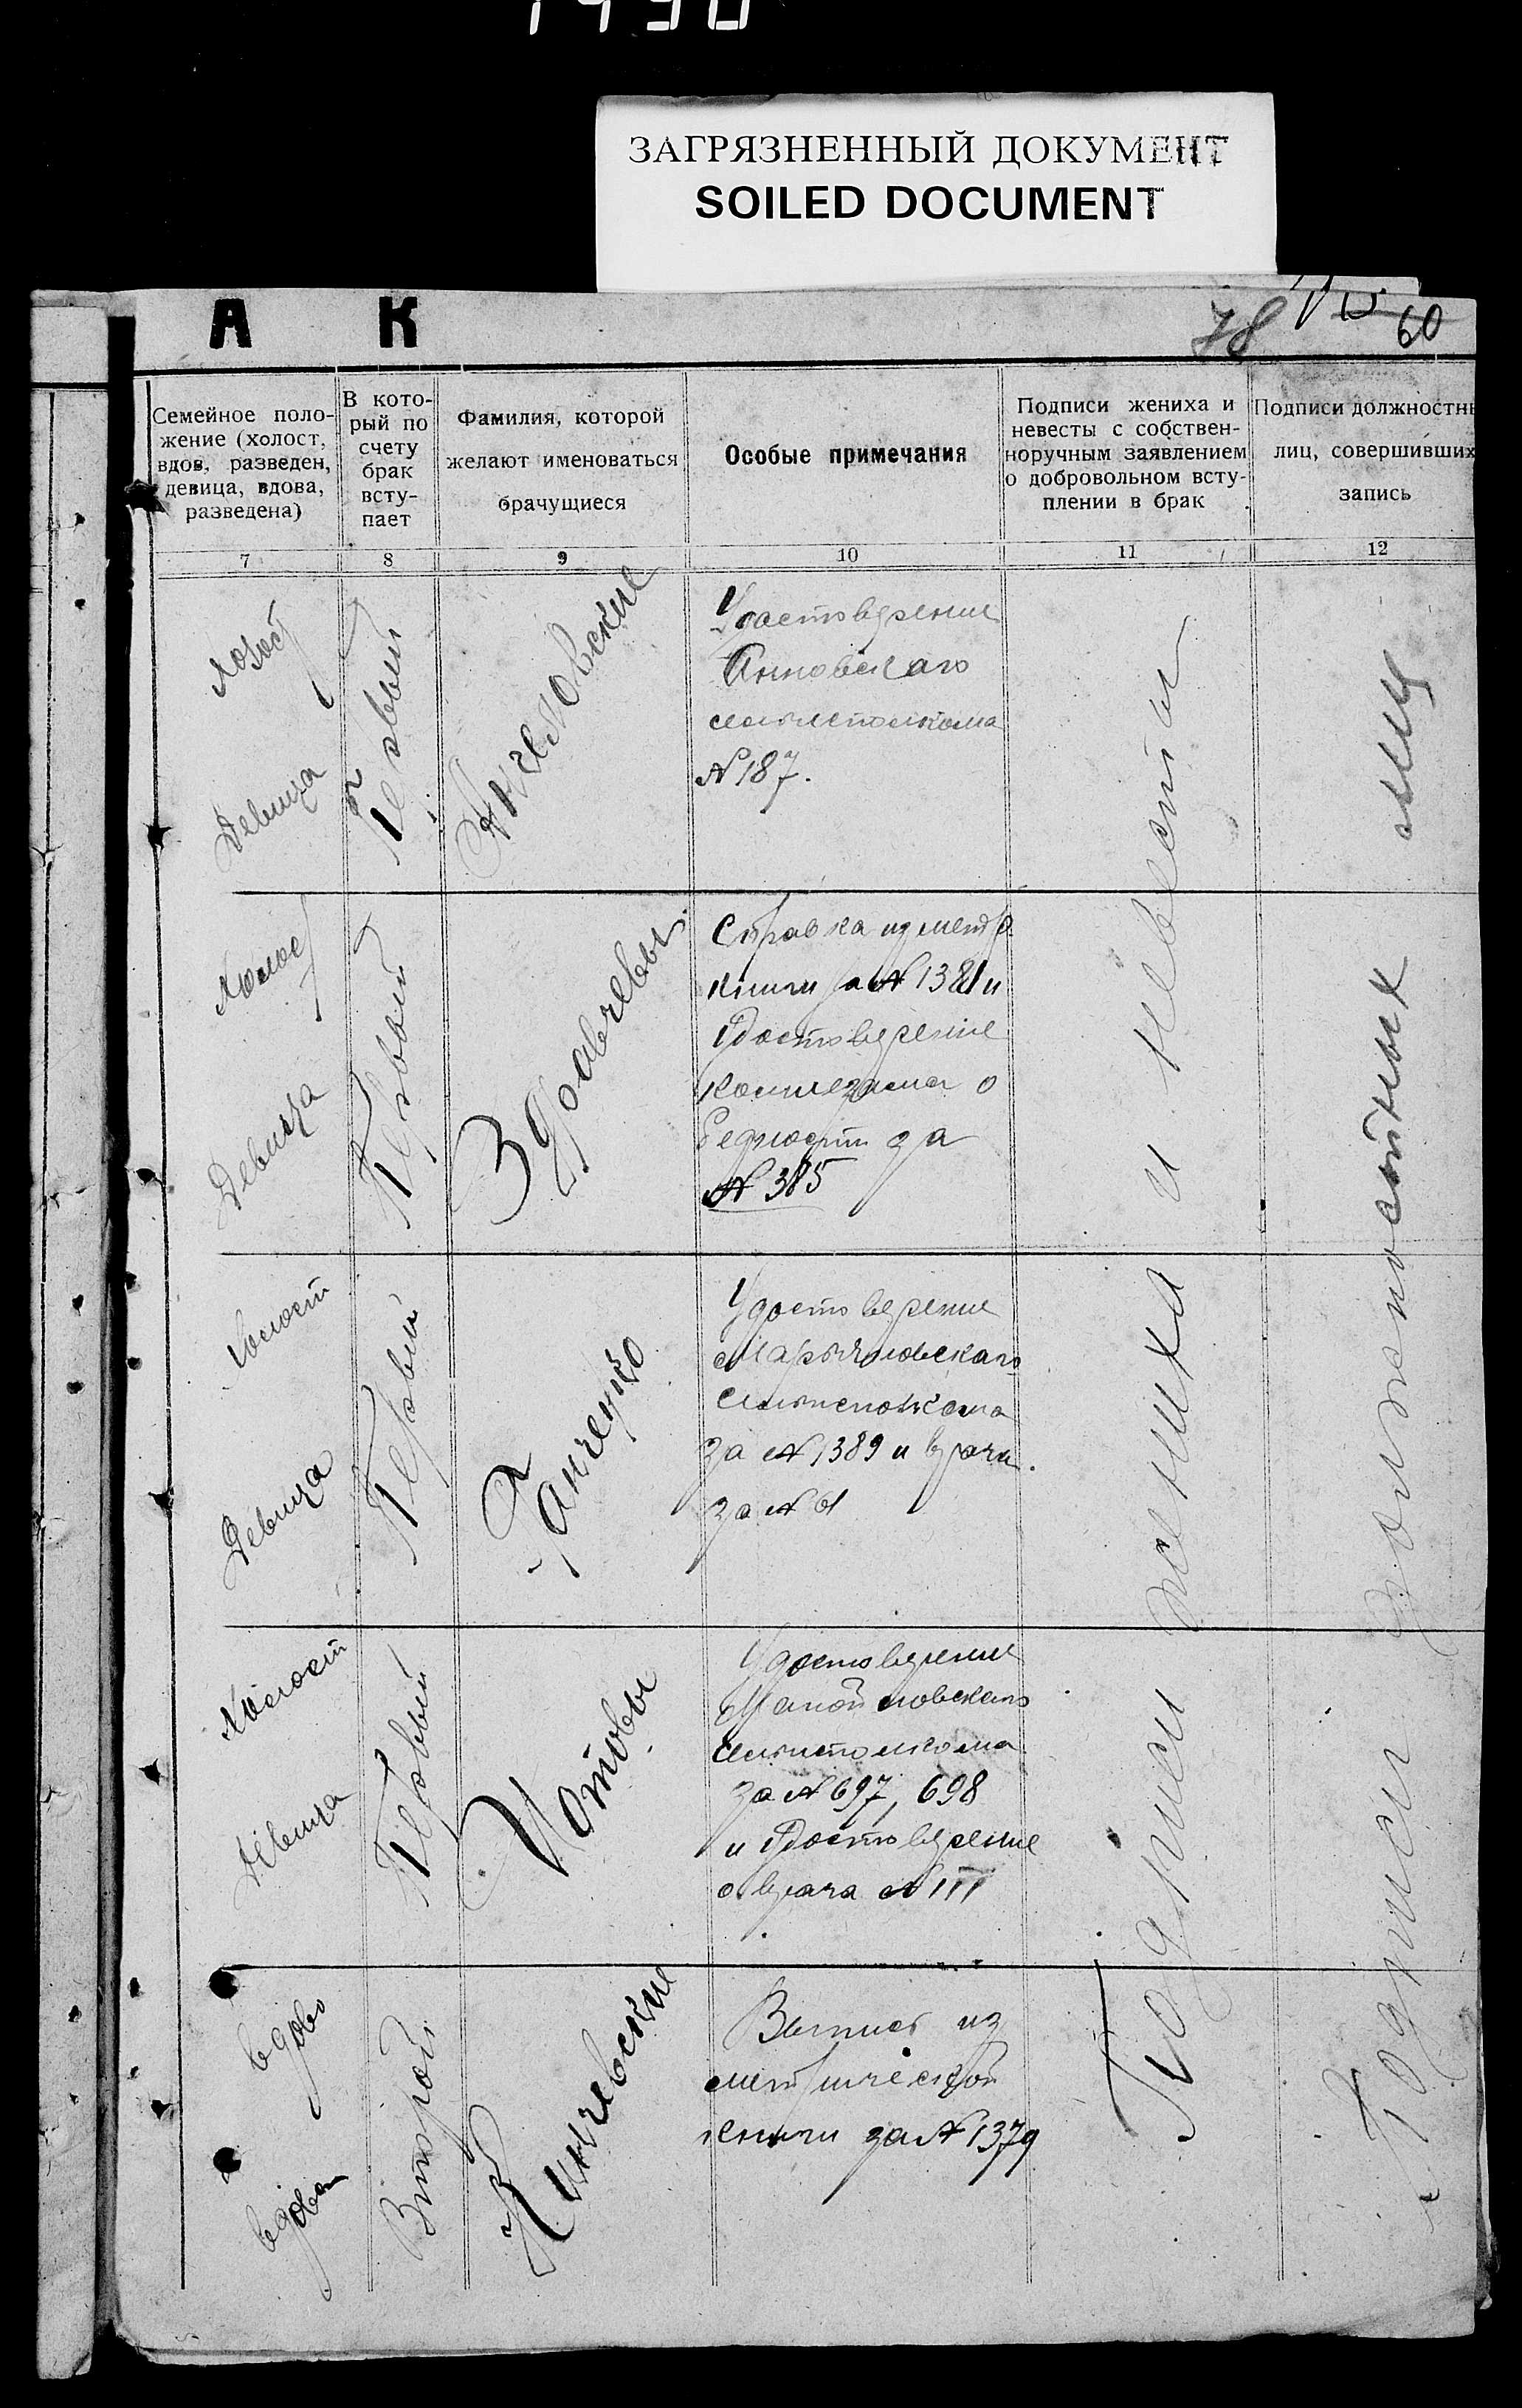 1490
ЗАГРЯЗНЕННЫЙ ДОКУМЕНТ
SOILED DOCUMENT
А К
78
60
Семейное поло-
жение (холост,
вдов, разведен,
девица, вдова,
разведена)
В кото-
рый по
счету
брак
всту-
пает
Фамилия, которой
желают именоваться
брачущиеся
Особые примечания
Подписи жениха и
невесты с собствен-
норучным заявлением
о добровольном всту-
плении в брак
Подписи должностн
лиц, совершивших
запись
7
8
9
10
11
12
Девица
Первый
Удостоверение
Анновского
№ 187.
Холост
Девица
Первый
Здравчевы
Справка из метр.
книги за № 1381 и
удостоверение
о
бедности за
№ 385
Холост
Девица
Первый
Ганчецко
Удостоверение
за № 1389 и врача
за №
Холост
Девица
Первый
Котовы
Удостоверение
за № 697, 698
и удостоверение
врача №
вдов
вдова
Второй
Кинчевские
Выпись из
метрической
книги за № 1379
Подписи жениха и невесты
Подписи должностных лиц